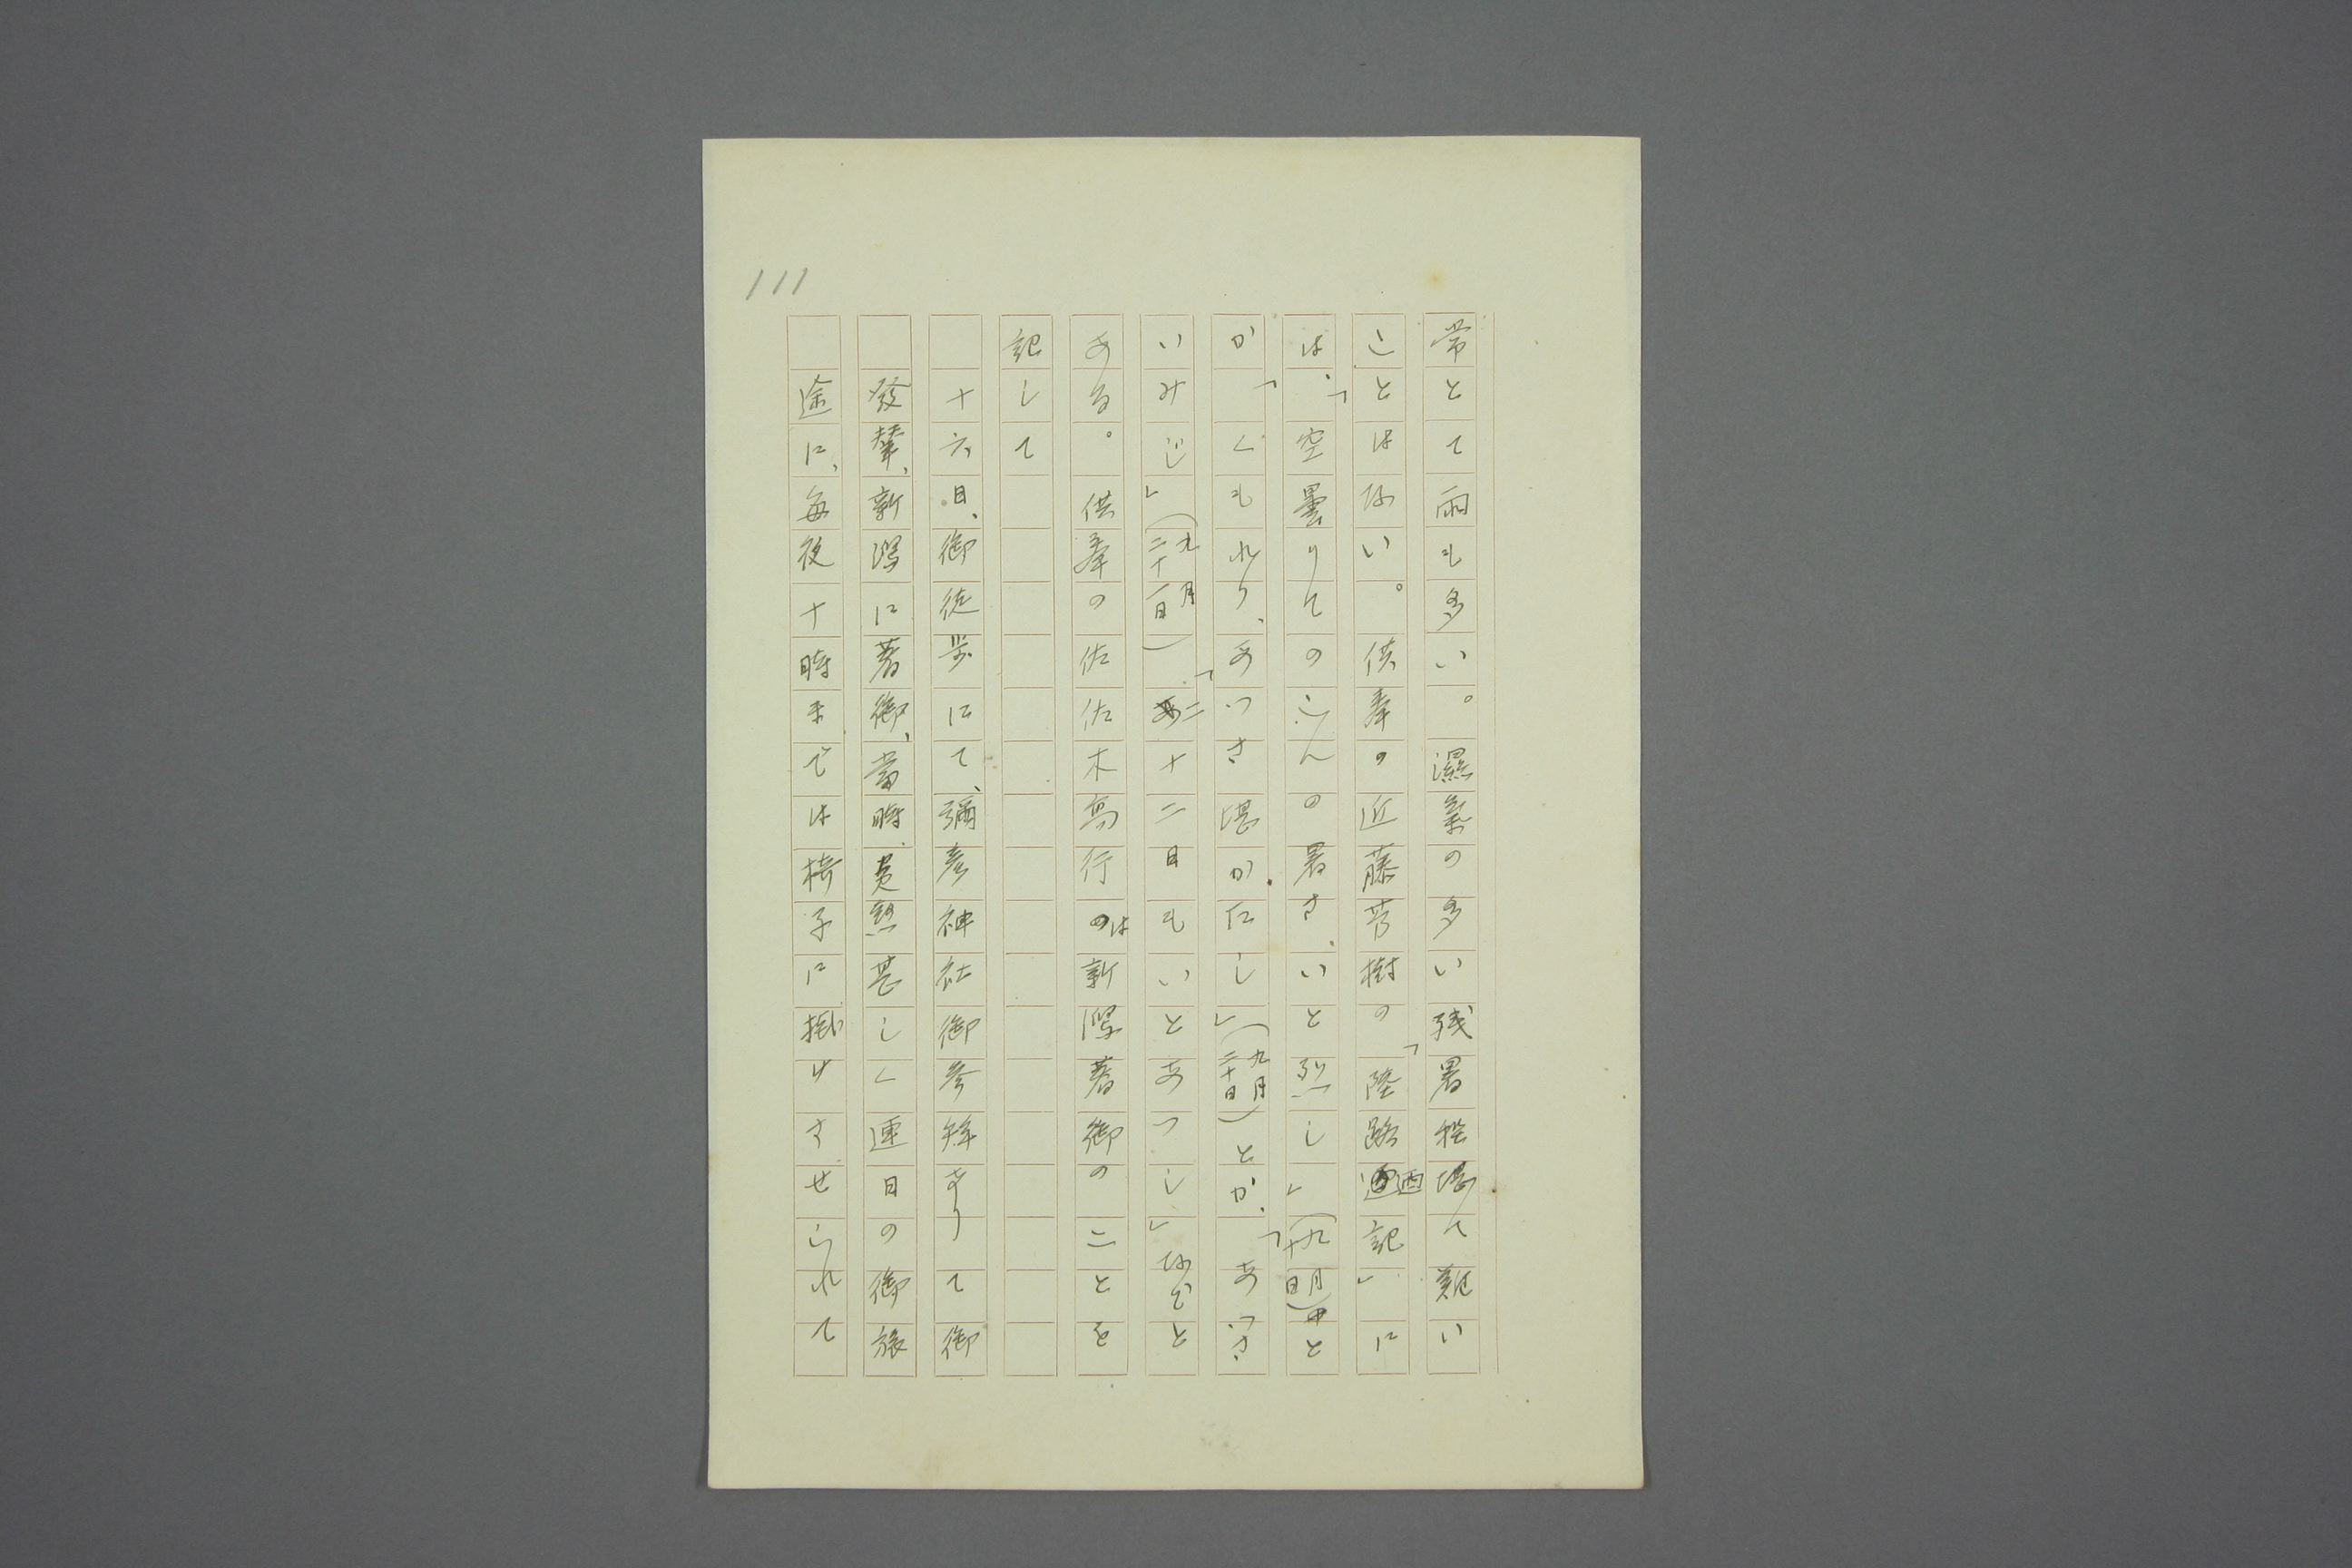 111
常とて雨も多い。濕氣の多い残暑程堪へ難い
ことはない。供奉の近藤芳樹の「陸路廼記」に
は、「空曇りてのこんの暑さ、いと烈し」(九月十日)と
か「くもれり、あつさ堪かたし」(九月二十日)とか、「あつさ、
いみじ」(九月二十一日)「二十二日もいとあつし」などと
ある。供奉の佐佐木高行は新潟著御のことを
記して
十六日、御徒歩にて、彌彦神社御參拜ありて御
發輦、新潟に著御、當時炎熱甚しく連日の御旅
途に、毎夜十時までは椅子に掛けさせられて